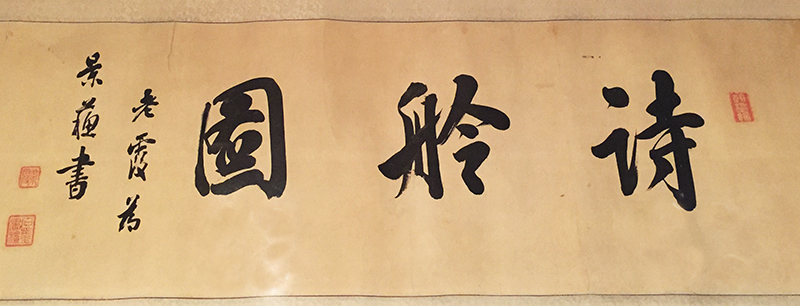 詩舲圖
老霞為
景蘇書